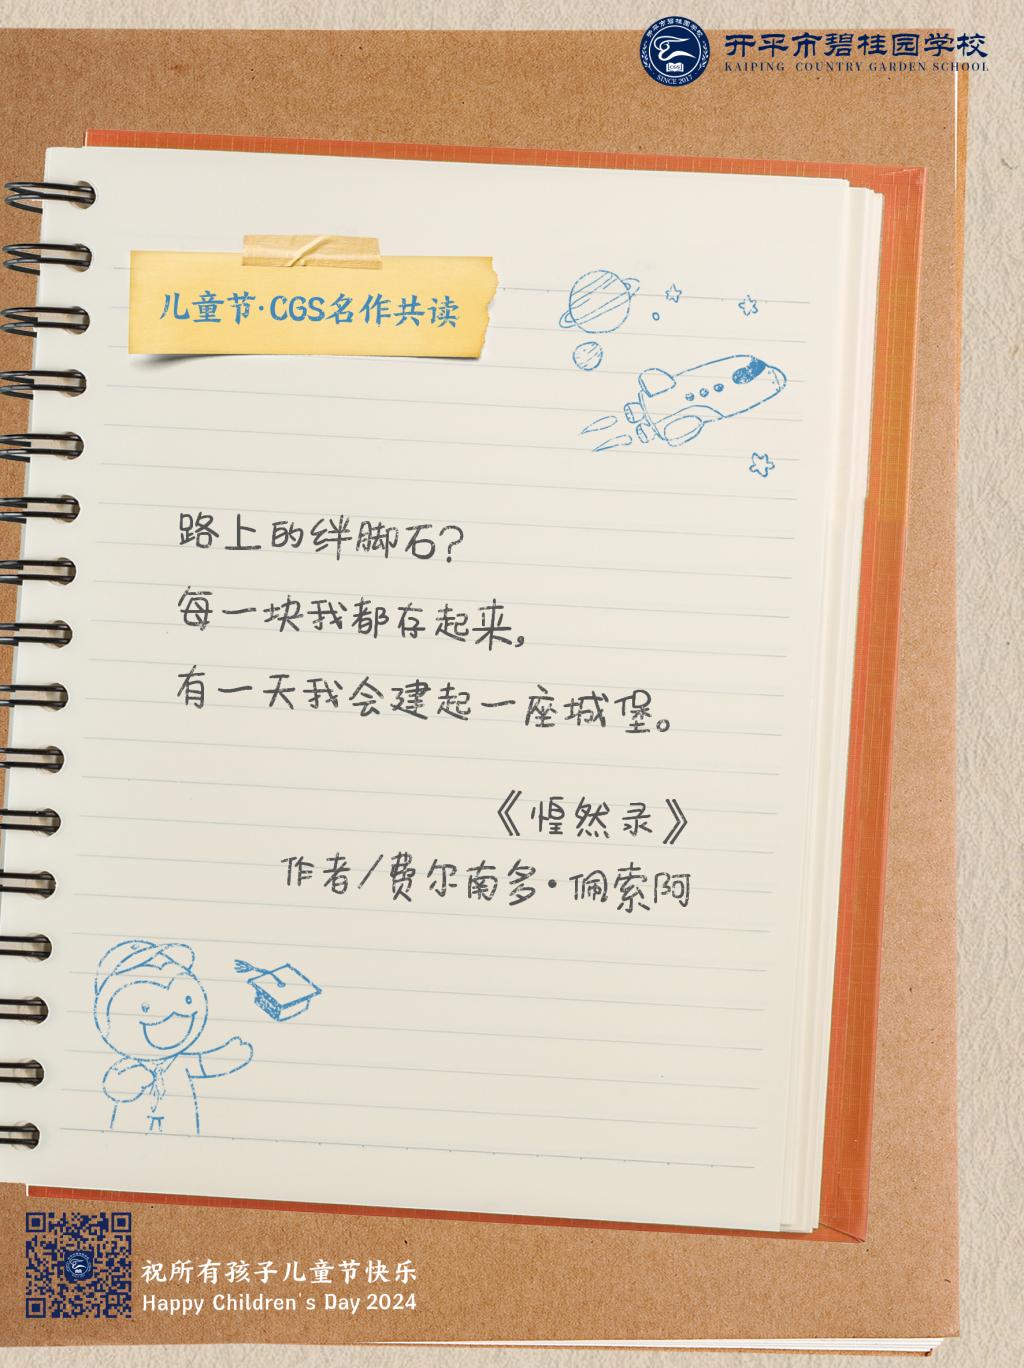 开平市碧桂园学校
KAIPING COUNTRY GARDEN SCHOOL
SINCE 2017
儿童节·CGS名作共读
路上的绊脚石?
每一块我都存起来,
有一天我会建起一座城堡。
《惶然录》
作者/费尔南多·佩索阿
祝所有孩子儿童节快乐
Happy Children's Day 2024